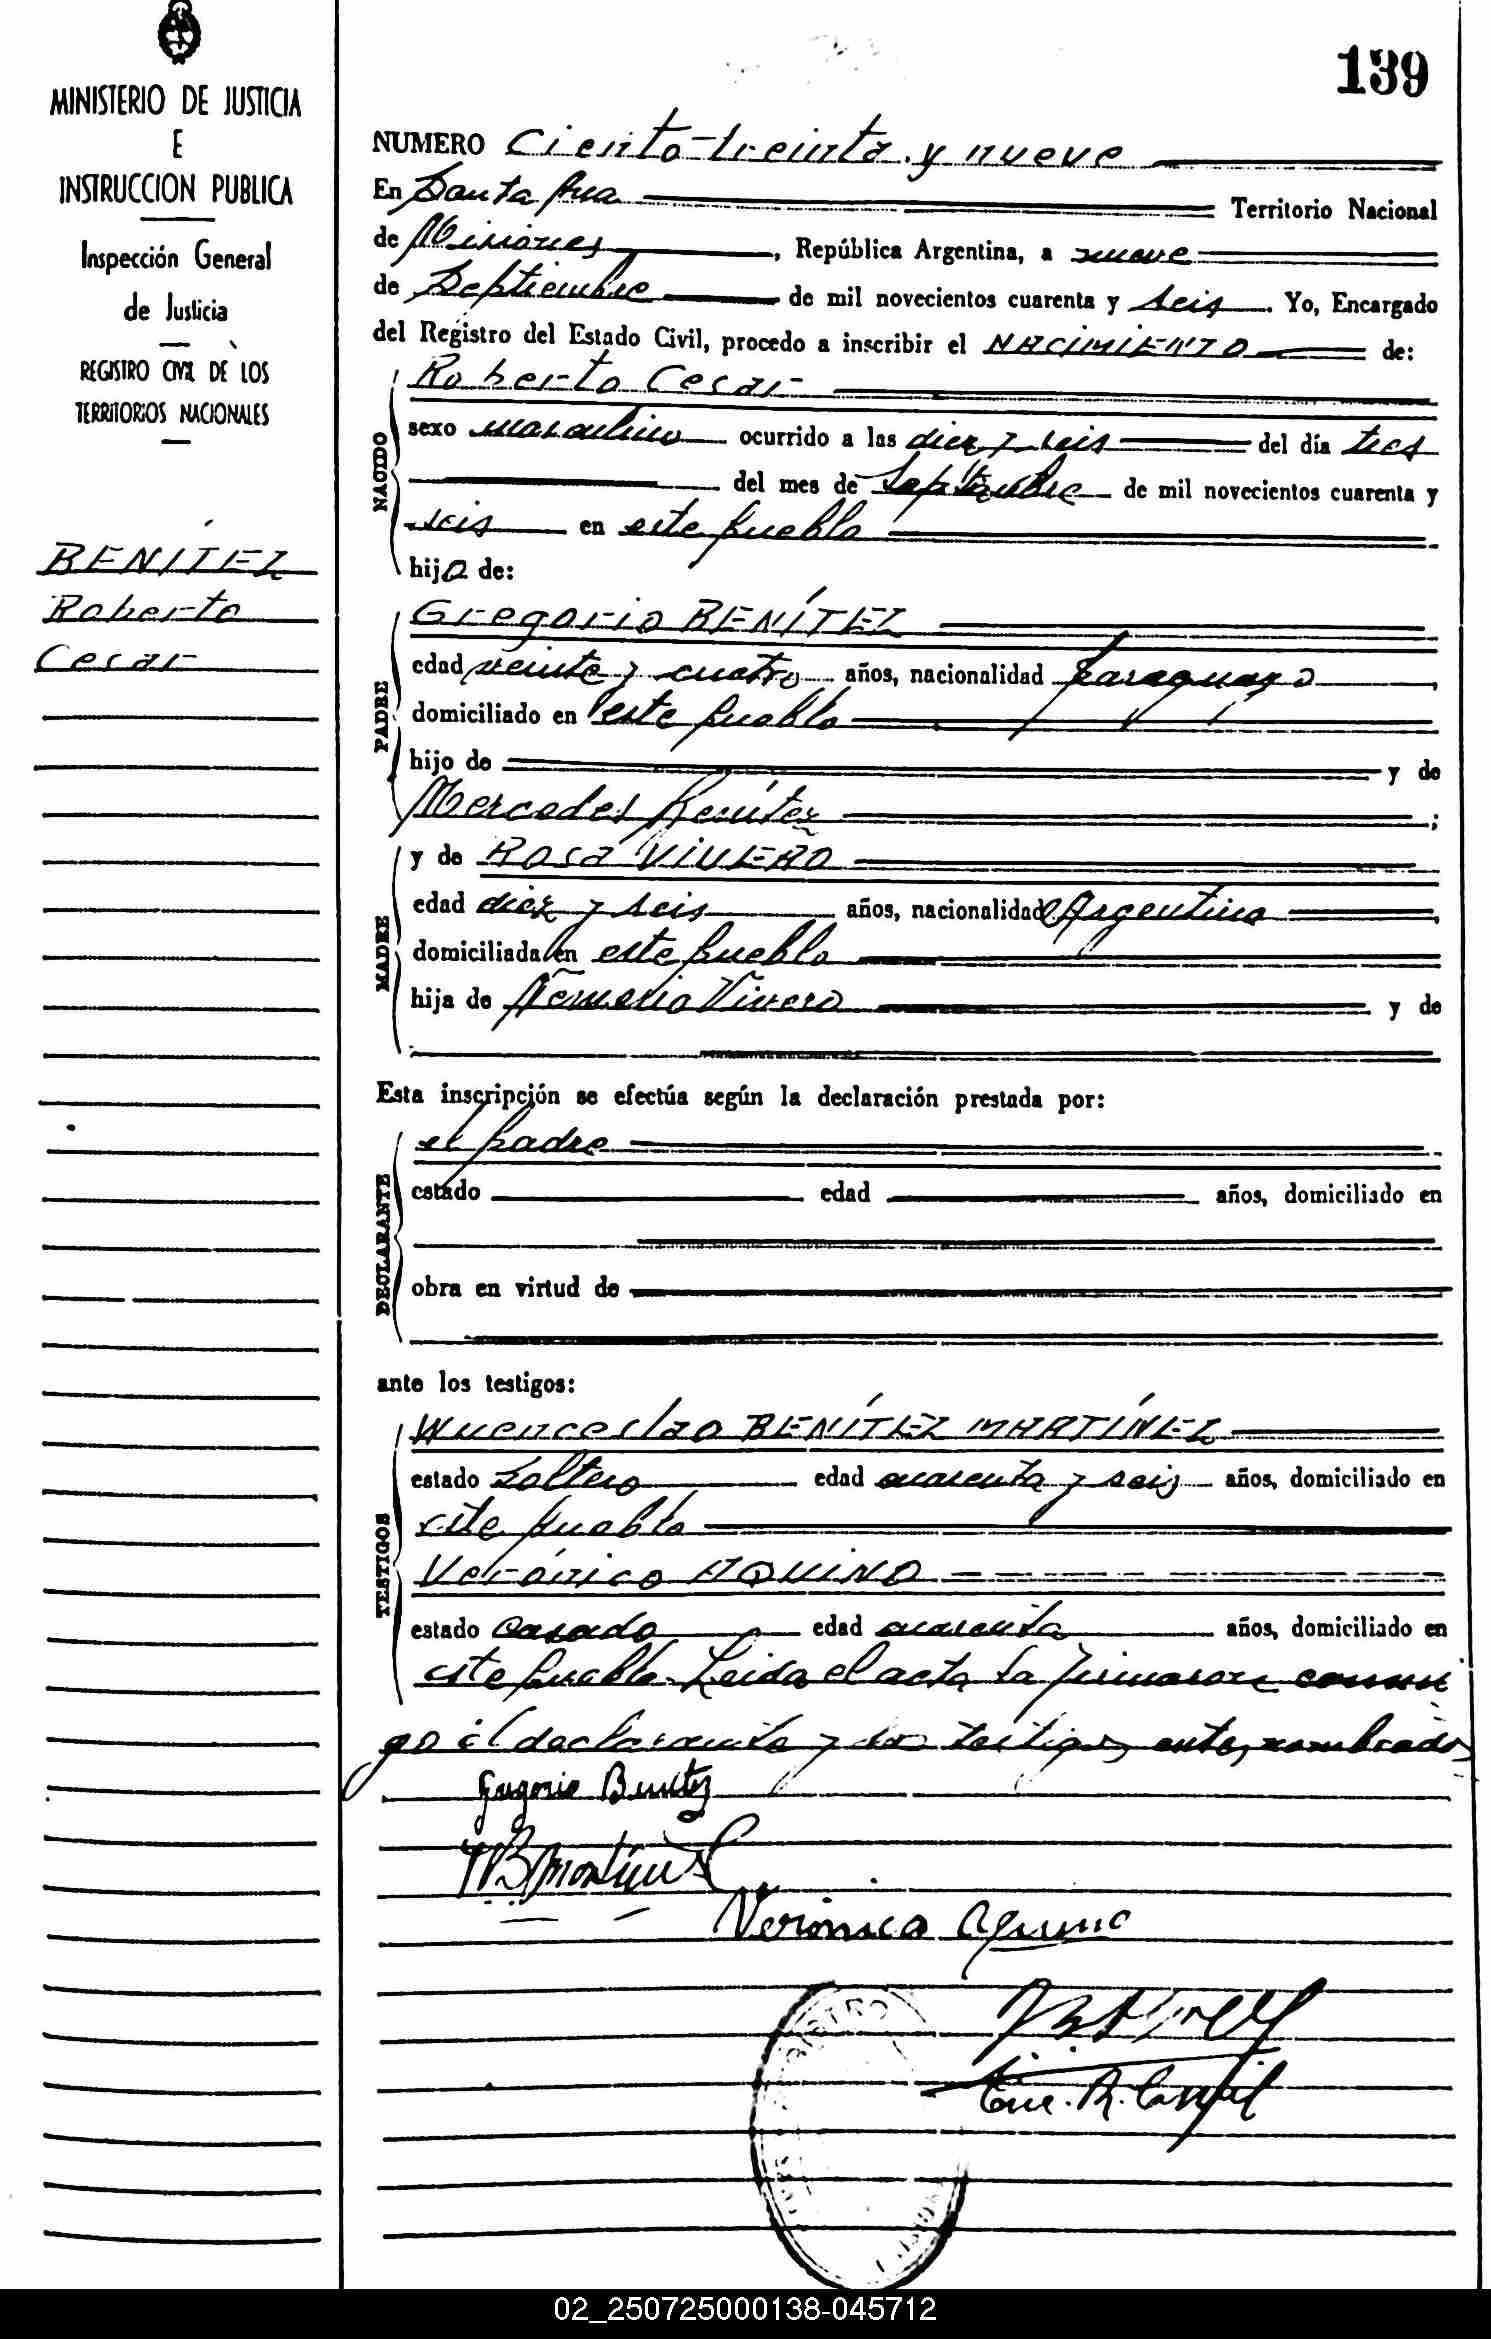 MINISTERIO DE JUSTICIA
E
INSTRUCCION PUBLICA
Inspección General
de Justicia
REGISTRO CIVIL DE LOS
TERRITORIOS NACIONALES
BENÍTEZ
Roberto
Cesar
139
NUMERO Ciento treinta y nueve
En Santa Ana Territorio Nacional
de Misiones, República Argentina, a nueve
de Septiembre de mil novecientos cuarenta y seis. Yo, Encargado
del Registro del Estado Civil, procedo a inscribir el NACIMIENTO de:
NACIDO
Roberto Cesar
sexo masculino ocurrido a las diez y seis del día tres
del mes de Septiembre de mil novecientos cuarenta y
seis en este pueblo
hijo de:
PADRE
Gregorio BENÍTEZ
edad veinte y cuatro años, nacionalidad paraguayo,
domiciliado en este pueblo
hijo de y de
Mercedes Benítez;
MADRE
y de Rosa VIVERO
edad diez y seis años, nacionalidad Argentina,
domiciliada en este pueblo
hija de Vivero y de
Esta inscripción se efectúa según la declaración prestada por:
DECLARANTE
el padre
estado edad años, domiciliado en
obra en virtud de
ante los testigos:
TESTIGOS
Wuenceslao BENÍTEZ MARTÍNEZ
estado soltero edad cuarenta y seis años, domiciliado en
este pueblo
Verónico AQUINO
estado casado edad cuarenta años, domiciliado en
este pueblo. Leida el acta la firmaron conmi
go el declarante y los testigos antes nombrados
Gregorio Benitez
WBMartínez
Veronico Aquino
REGISTRO
02_250725000138-045712